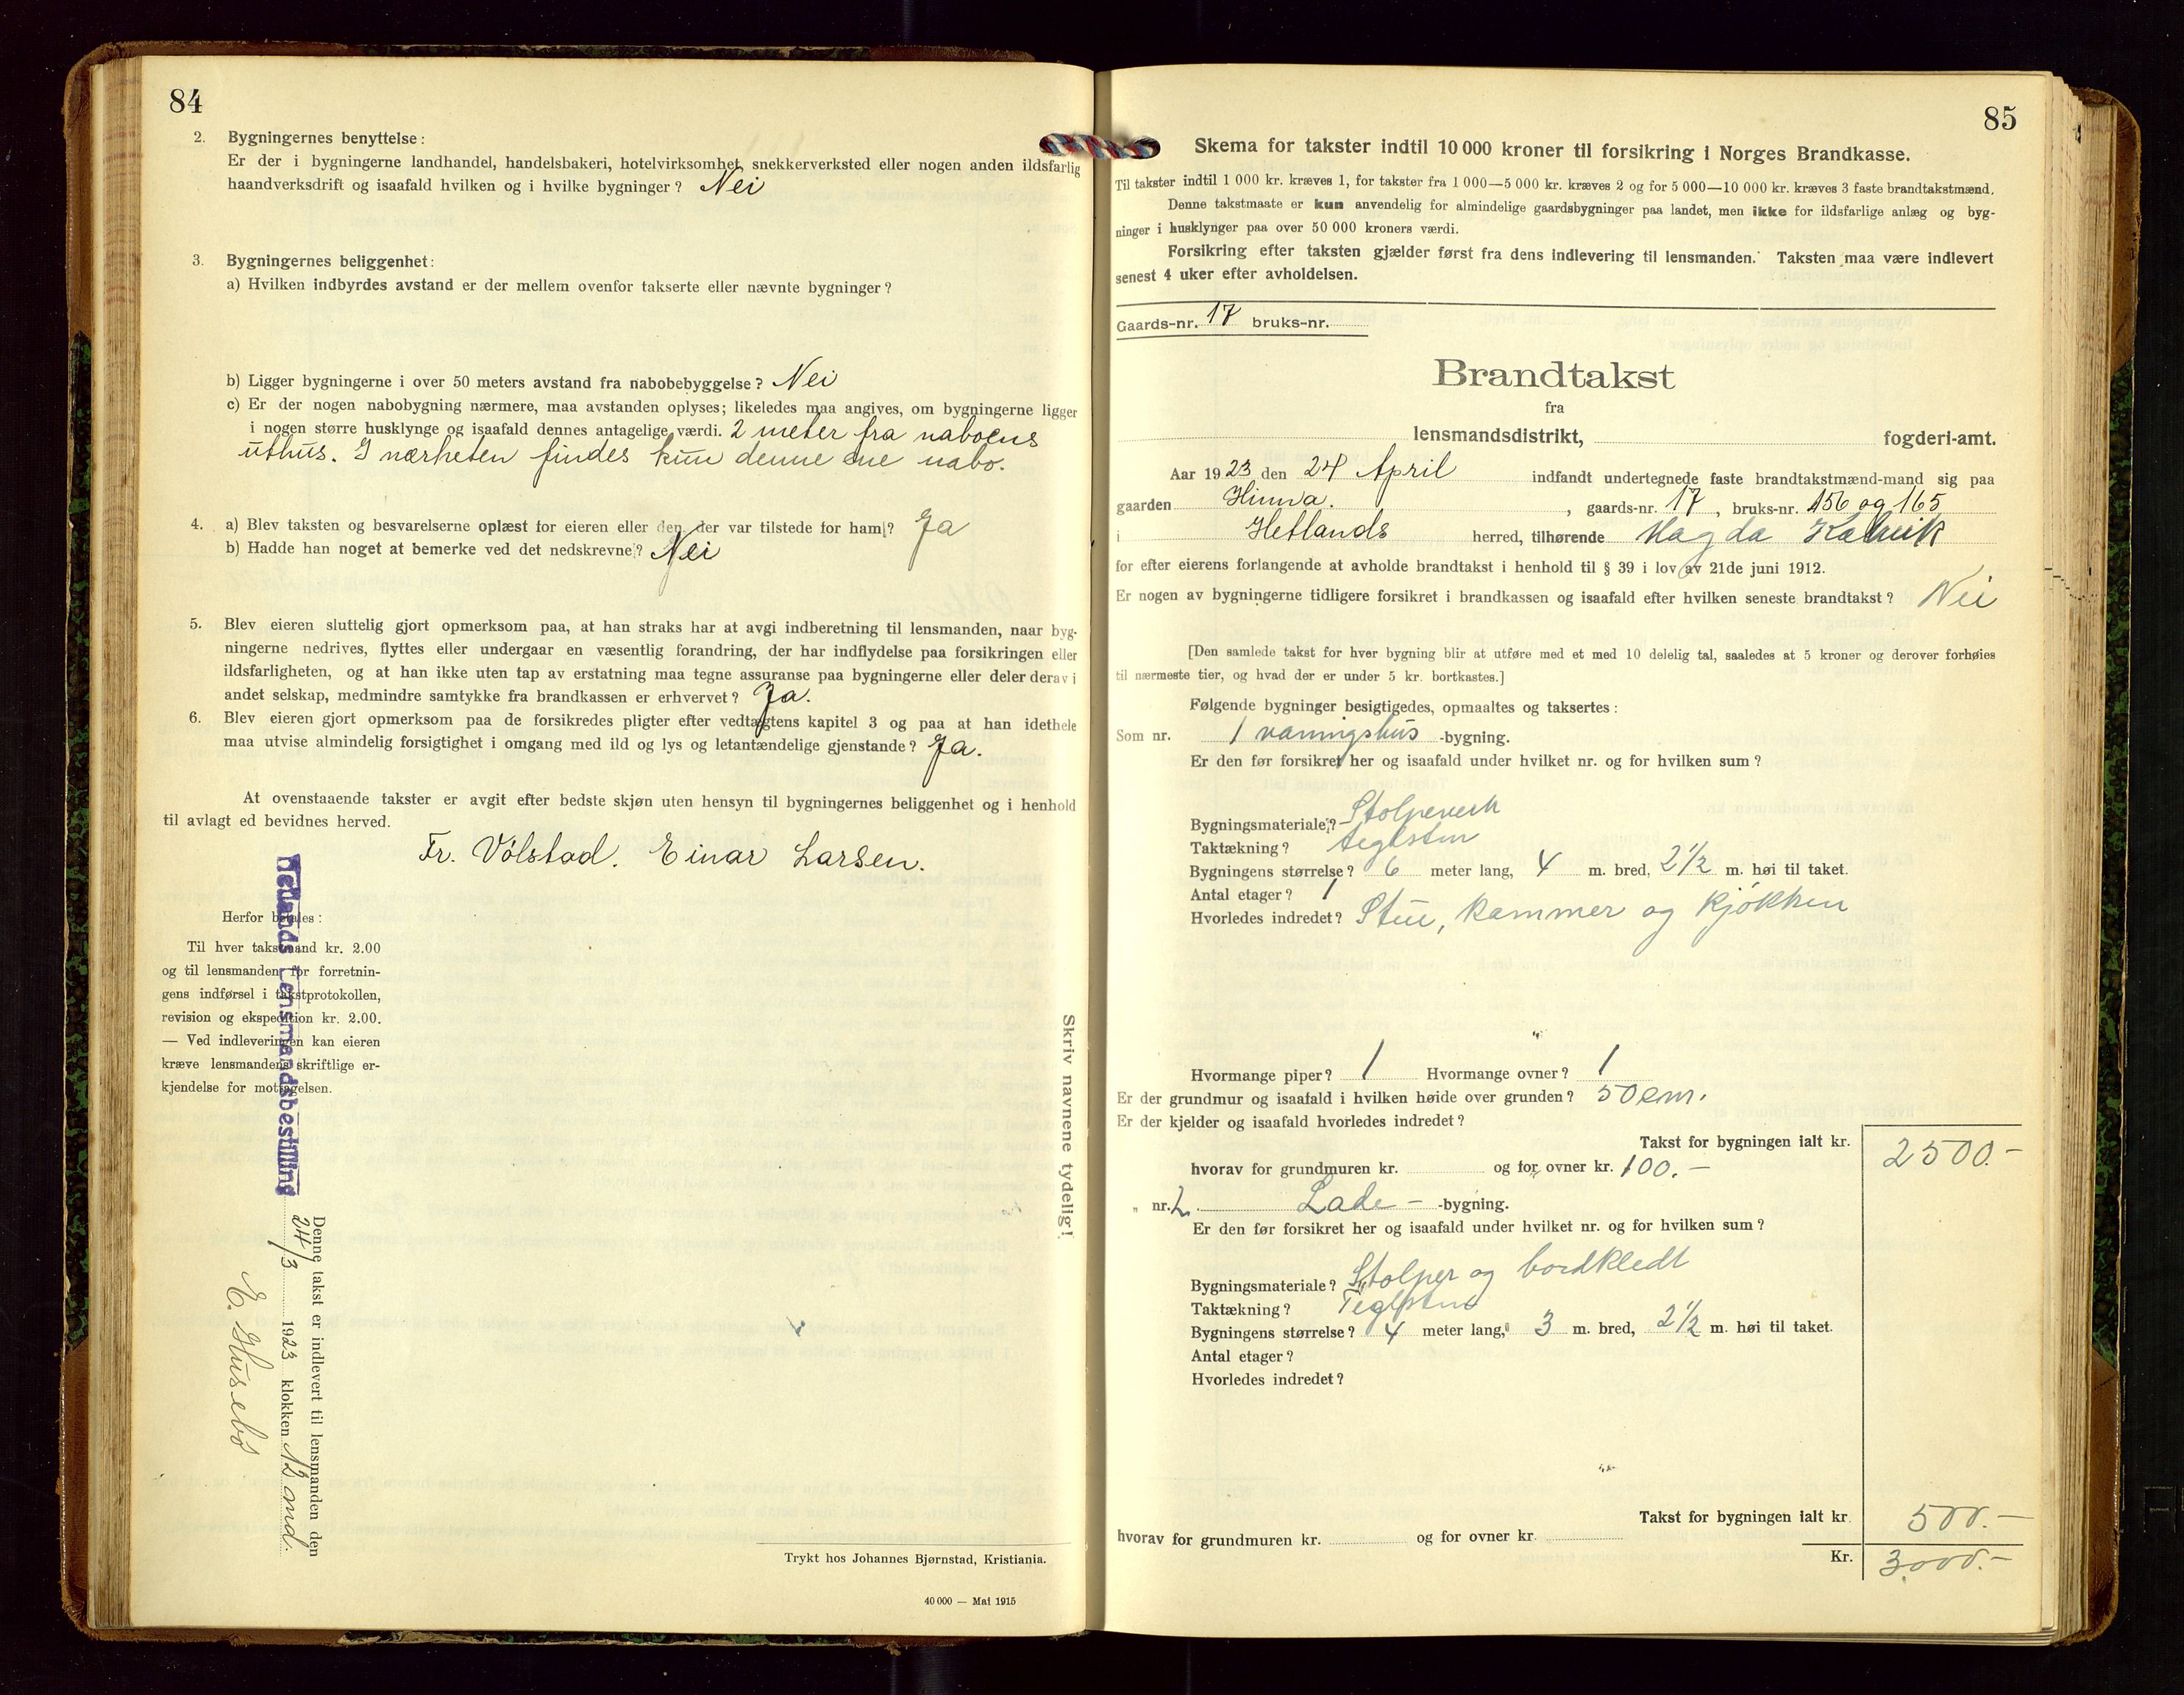 84
2. Bygningernes benyttelse:
Er der i bygningerne landhandel, handelsbakeri, hotelvirksomhet, snekkerverksted eller nogen anden ildsfarlig
haandverksdrift og isaafald hvilken og i hvilke bygninger? Nei
3. Bygningernes beliggenhet:
a) Hvilken indbyrdes avstand er der mellem ovenfor takserte eller nævnte bygninger?
b) Ligger bygningerne i over 50 meters avstand fra nabobebyggelse? Nei
c) Er der nogen nabobygning nærmere, maa avstanden oplyses; likeledes maa angives, om bygningerne ligger
i nogen større husklynge og isaafald dennes antagelige værdi. 2 meter fra naboens
uthus. I nærheten findes kun denne ene nabo.
4. a) Blev taksten og besvarelserne oplæst for eieren eller den, der var tilstede for ham? Ja
b) Hadde han noget at bemerke ved det nedskrevne? Nei
5. Blev eieren sluttelig gjort opmerksom paa, at han straks har at avgi indberetning til lensmanden, naar byg-
ningerne nedrives, flyttes eller undergaar en væsentlig forandring, der har indflydelse paa forsikringen eller
ildsfarligheten, og at han ikke uten tap av erstatning maa tegne assuranse paa bygningerne eller deler derav i
andet selskap, medmindre samtykke fra brandkassen er erhvervet? Ja.
6. Blev eieren gjort opmerksom paa de forsikredes pligter efter vedtægtens kapitel 3 og paa at han idethele
maa utvise almindelig forsigtighet i omgang med ild og lys og letantændelige gjenstande? Ja.
At ovenstaaende takster er avgit efter bedste skjøn uten hensyn til bygningernes beliggenhet og i henhold
til avlagt ed bevidnes herved.
Fr. Vølstad. Einar Larsen.
Herfor betales:
Til hver takstmand kr. 2.00
og til lensmanden for forretnin-
gens indførsel i takstprotokollen,
revision og ekspedition kr. 2.00.
— Ved indleveringen kan eieren
kræve lensmandens skriftlige er-
kjendelse for mottagelsen.
Hetlands Lensmandsbestilling
Denne takst er indlevert til lensmanden den
24/3 1923 klokken 12 md.
E. Husebø
Skriv navnene tydelig!
Trykt hos Johannes Bjørnstad, Kristiania.
40 000 — Mai 1915
85
Skema for takster indtil 10 000 kroner til forsikring i Norges Brandkasse.
Til takster indtil 1 000 kr. kræves 1, for takster fra 1 000—5 000 kr. kræves 2 og for 5 000—10 000 kr. kræves 3 faste brandtakstmænd.
Denne takstmaate er kun anvendelig for almindelige gaardsbygninger paa landet, men ikke for ildsfarlige anlæg og byg-
ninger i husklynger paa over 50 000 kroners værdi.
Forsikring efter taksten gjælder først fra dens indlevering til lensmanden. Taksten maa være indlevert
senest 4 uker efter avholdelsen.
Gaards-nr. 17 bruks-nr.
Brandtakst
fra
lensmandsdistrikt, fogderi-amt.
Aar 1923 den 24 April indfandt undertegnede faste brandtakstmænd-mand sig paa
gaarden Hinna. , gaards-nr. 17 , bruks-nr. 156 og 165
i Hetlands herred, tilhørende Magda
for efter eierens forlangende at avholde brandtakst i henhold til § 39 i lov av 21de juni 1912.
Er nogen av bygningerne tidligere forsikret i brandkassen og isaafald efter hvilken seneste brandtakst? Nei
[Den samlede takst for hver bygning blir at utføre med et med 10 delelig tal, saaledes at 5 kroner og derover forhøies
til nærmeste tier, og hvad der er under 5 kr. bortkastes.]
Følgende bygninger besigtigedes, opmaaltes og taksertes:
Som nr. 1 vaaningshus -bygning.
Er den før forsikret her og isaafald under hvilket nr. og for hvilken sum?
Bygningsmateriale? Stolpeverk
Taktækning? teglsten
Bygningens størrelse? 6 meter lang, 4 m. bred, 2 1/2 m. høi til taket.
Antal etager? 1
Hvorledes indredet? Stue, kammer og kjøkken
Hvormange piper? 1 Hvormange ovner? 1
Er der grundmur og isaafald i hvilken høide over grunden? 50 cm.
Er der kjelder og isaafald hvorledes indredet?
Takst for bygningen ialt kr. 2500.—
hvorav for grundmuren kr. og for ovner kr. 100.—
„ nr. 2. Lade — -bygning.
Er den før forsikret her og isaafald under hvilket nr. og for hvilken sum?
Bygningsmateriale? Stolper og bordkledt
Taktækning? Teglsten
Bygningens størrelse? 4 meter lang, 3 m. bred, 2 1/2 m. høi til taket.
Antal etager?
Hvorledes indredet?
Takst for bygningen ialt kr. 500.—
hvorav for grundmuren kr. og for ovner kr.
Kr. 3000.—